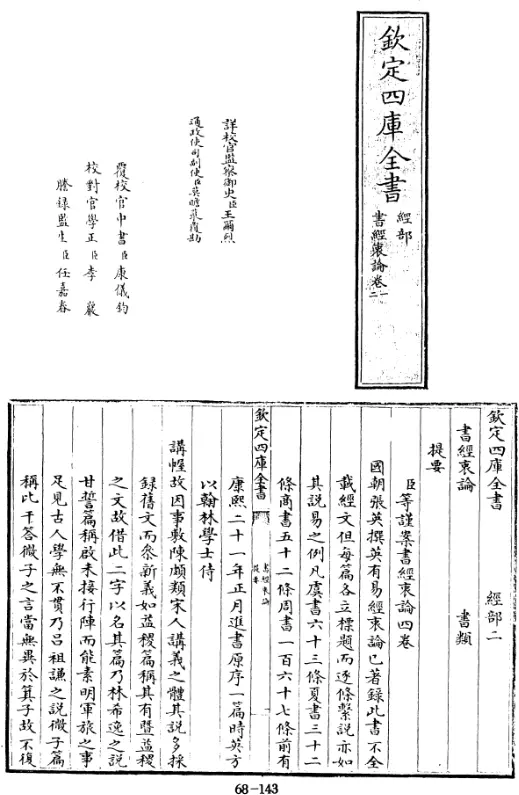 欽定四庫全書
經部
書經衷論卷一
二
詳校官監察御史臣王爾烈
通政使司副使臣莫瞻菉覆勘
覆校官中書臣康儀鈞
校對官學正臣李巖
謄錄監生臣任嘉春
欽定四庫全書 經部二
書經衷論 書類
提要
臣等謹案書經衷論四卷
國朝張英撰英有易經衷論已著錄此書不全
載經文但每篇各立標題而逐條繫說亦如
其說易之例凡虞書六十三條夏書三十二
條商書五十二條周書一百六十七條前有
欽定四庫全書
書經衷論
提要
康熙二十一年正月進書原序一篇時英方
以翰林學士侍
講幄故因事敷陳頗類宋人講義之體其說多採
錄舊文而參新義如益稷篇稱其有曁益稷
之文故借此二字以名其篇乃林希逸之說
甘誓篇稱啟未接行陣而能素明軍旅之事
足見古人學無不貫乃呂祖謙之說微子篇
稱比干答微子之言當無異於箕子故不復
68-143